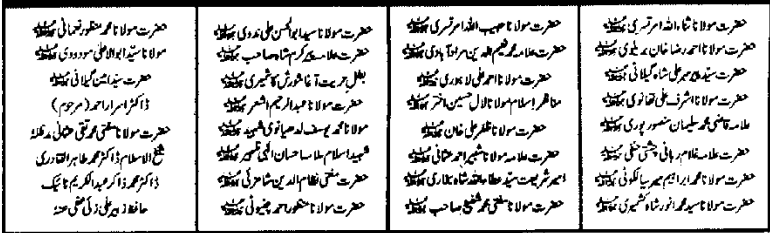 حضرت مولانا ثناء اللہ امرتسری رحمۃ اللہ علیہ
حضرت مولانا احمد رضا خان بریلوی رحمۃ اللہ علیہ
حضرت سید پیر مہر علی شاہ گیلانی رحمۃ اللہ علیہ
حضرت مولانا اشرف علی تھانوی رحمۃ اللہ علیہ
علامہ قاضی محمد سلیمان منصور پوری رحمۃ اللہ علیہ
حضرت علامہ غلام ربانی چشتی حنفی رحمۃ اللہ علیہ
حضرت مولانا محمد ابراہیم میر سیالکوٹی رحمۃ اللہ علیہ
حضرت مولانا سید محمد انور شاہ کشمیری رحمۃ اللہ علیہ
حضرت مولانا حبیب اللہ امرتسری رحمۃ اللہ علیہ
حضرت علامہ محمد نعیم الدین مرادآبادی رحمۃ اللہ علیہ
حضرت مولانا احمد علی لاہوری رحمۃ اللہ علیہ
مناظر اسلام مولانا لال حسین اختر رحمۃ اللہ علیہ
حضرت مولانا ظفر علی خان رحمۃ اللہ علیہ
حضرت علامہ مولانا شبیر احمد عثمانی رحمۃ اللہ علیہ
امیر شریعت سید عطاء اللہ شاہ بخاری رحمۃ اللہ علیہ
حضرت مولانا مفتی محمد شفیع صاحب رحمۃ اللہ علیہ
حضرت مولانا سید ابوالحسن علی ندوی رحمۃ اللہ علیہ
حضرت علامہ پیر کرم شاہ صاحب رحمۃ اللہ علیہ
بطل حریت آغا شورش کاشمیری رحمۃ اللہ علیہ
حضرت مولانا عبدالرحیم اشعر رحمۃ اللہ علیہ
مولانا محمد یوسف لدھیانوی شہید رحمۃ اللہ علیہ
شہید اسلام علامہ احسان الٰہی ظہیر رحمۃ اللہ علیہ
حضرت مفتی نظام الدین شامزئی رحمۃ اللہ علیہ
حضرت مولانا منظور احمد چنیوٹی رحمۃ اللہ علیہ
حضرت مولانا محمد منظور نعمانی رحمۃ اللہ علیہ
مولانا سید ابوالاعلیٰ مودودی رحمۃ اللہ علیہ
حضرت سید امین گیلانی رحمۃ اللہ علیہ
ڈاکٹر اسرار احمد (مرحوم)
حضرت مولانا مفتی محمد تقی عثمانی مدظلہ
شیخ الاسلام ڈاکٹر محمد طاہر القادری
ڈاکٹر محمد ذاکر عبدالکریم نائیک
حافظ زبیر علی زئی عفی عنہ